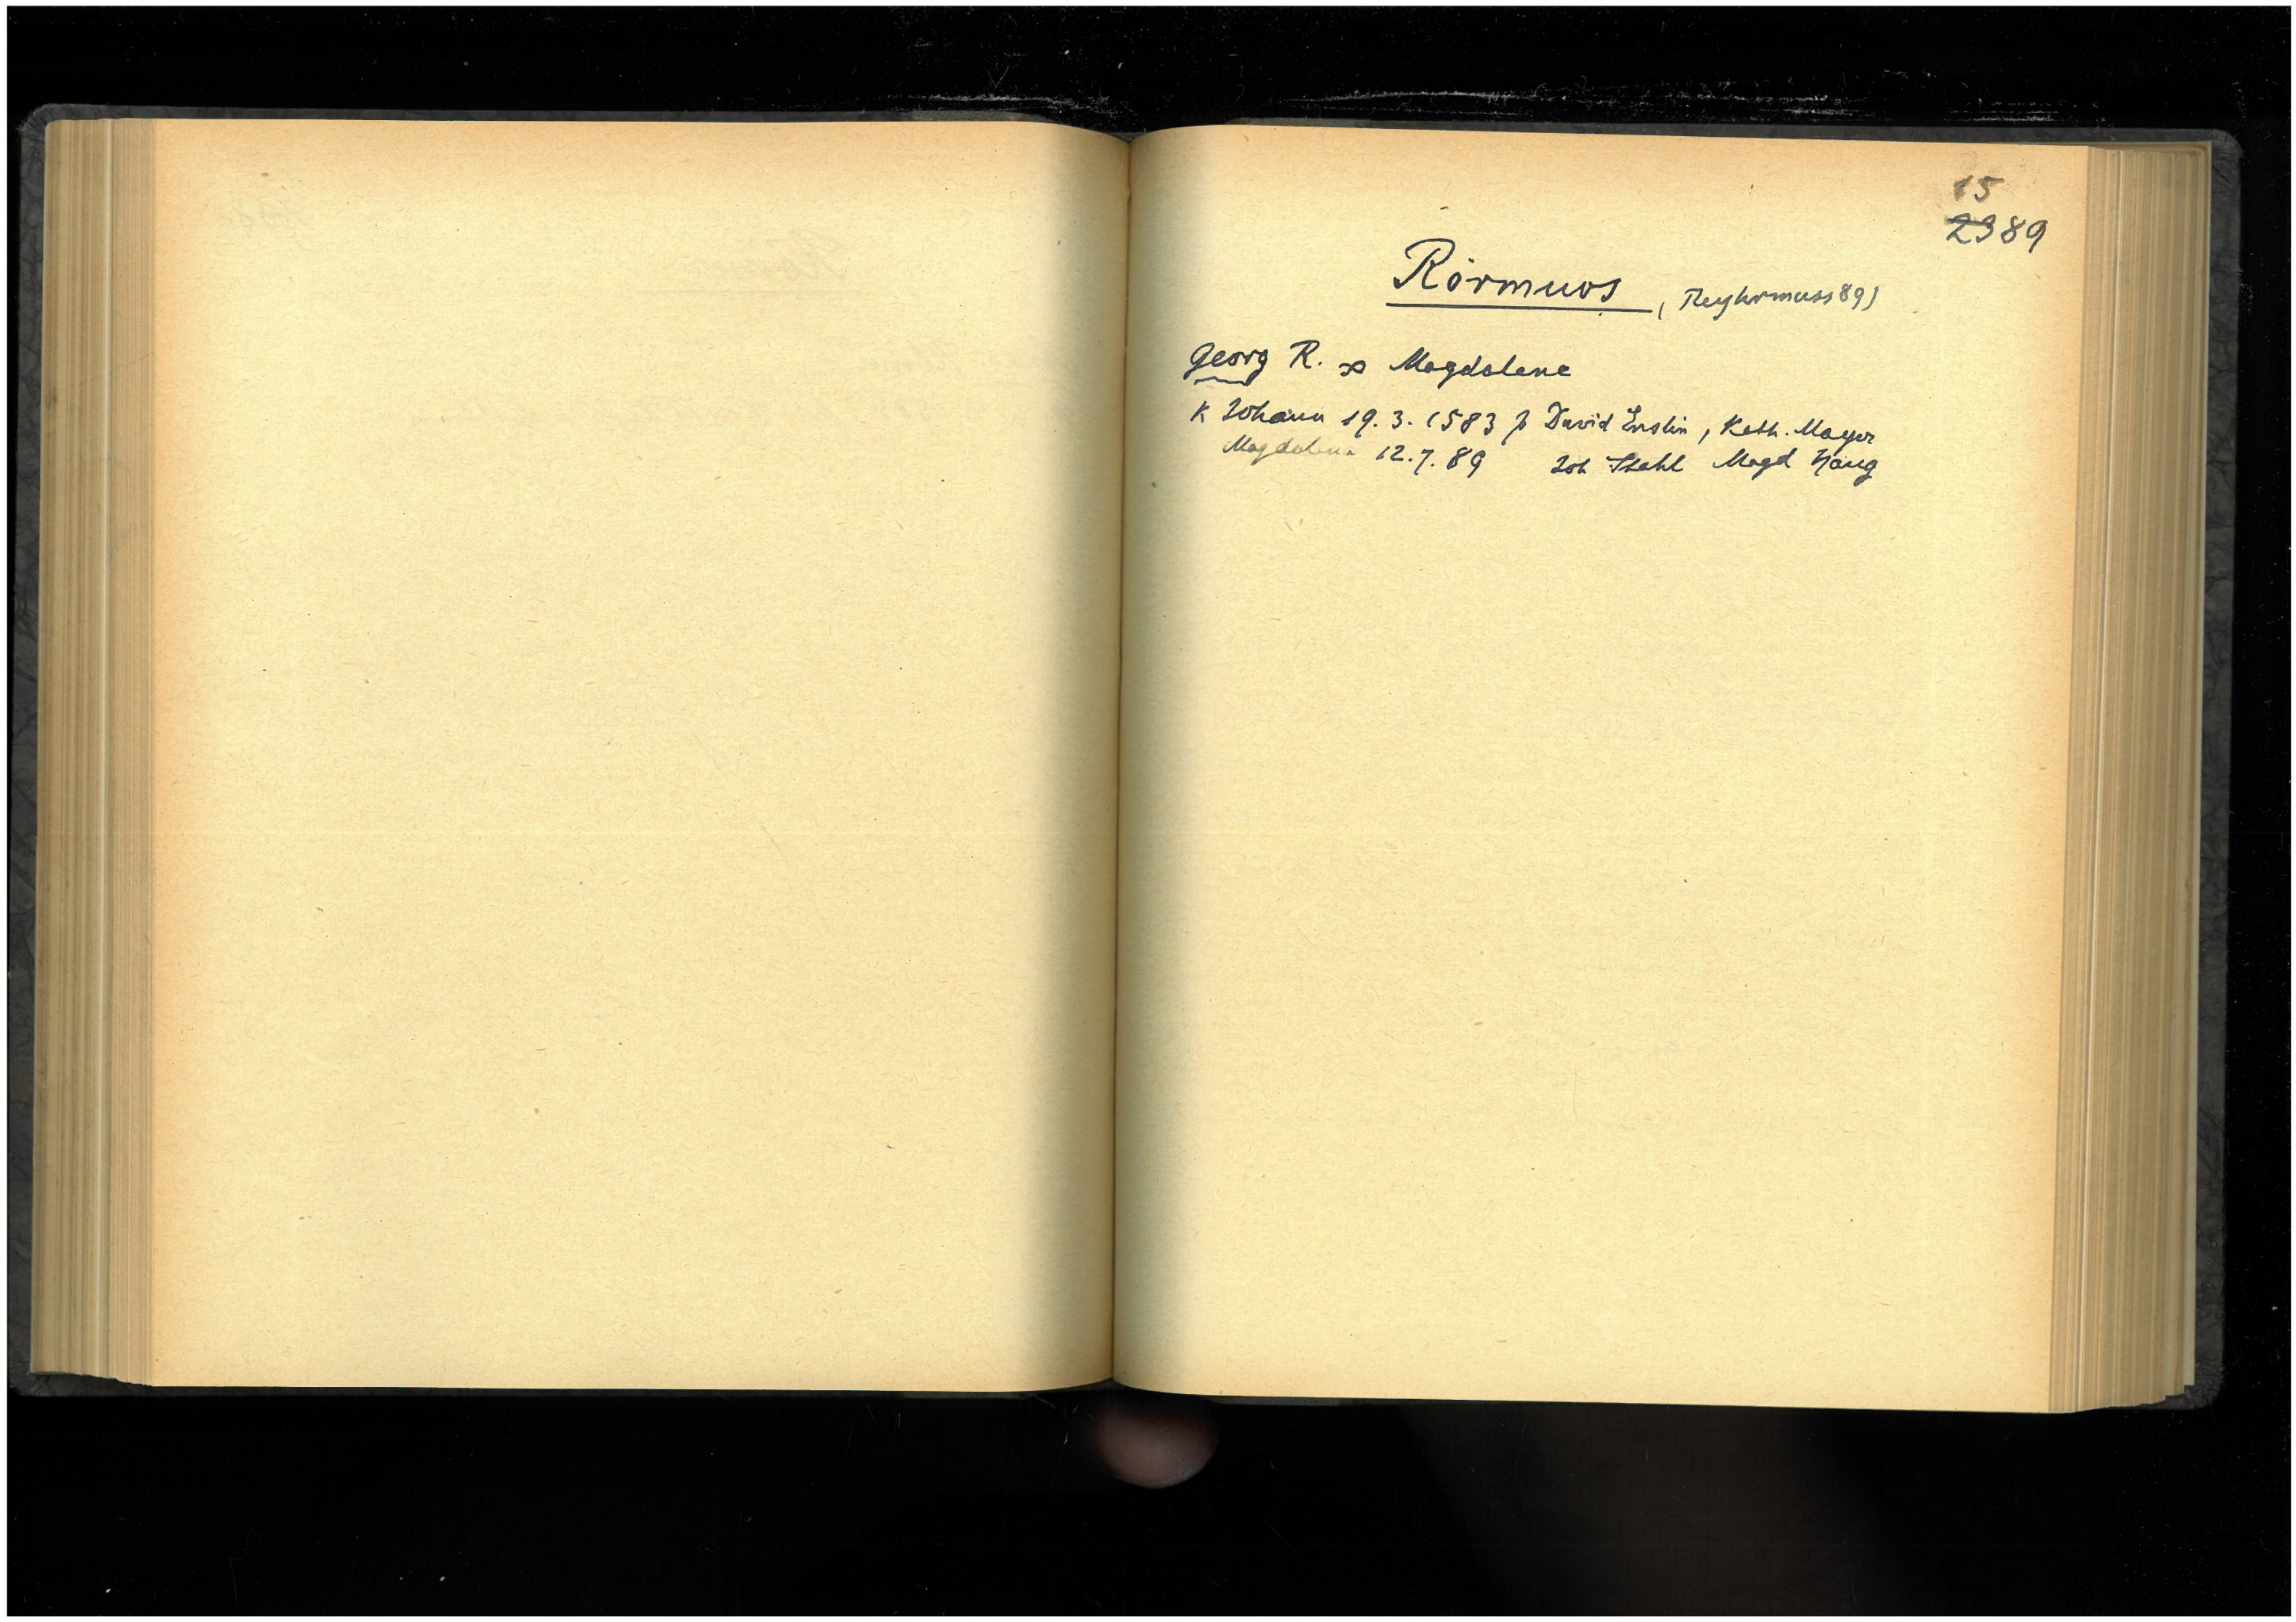 15
2389
Rörmuos (Reyhrmuss 89)
Georg R. ∞ Magdalene
K Johann 19. 3. 1583 p David Enslin, Kath. Mayer
Magdalena 12. 7. 89 Joh Stahl Magd Haug